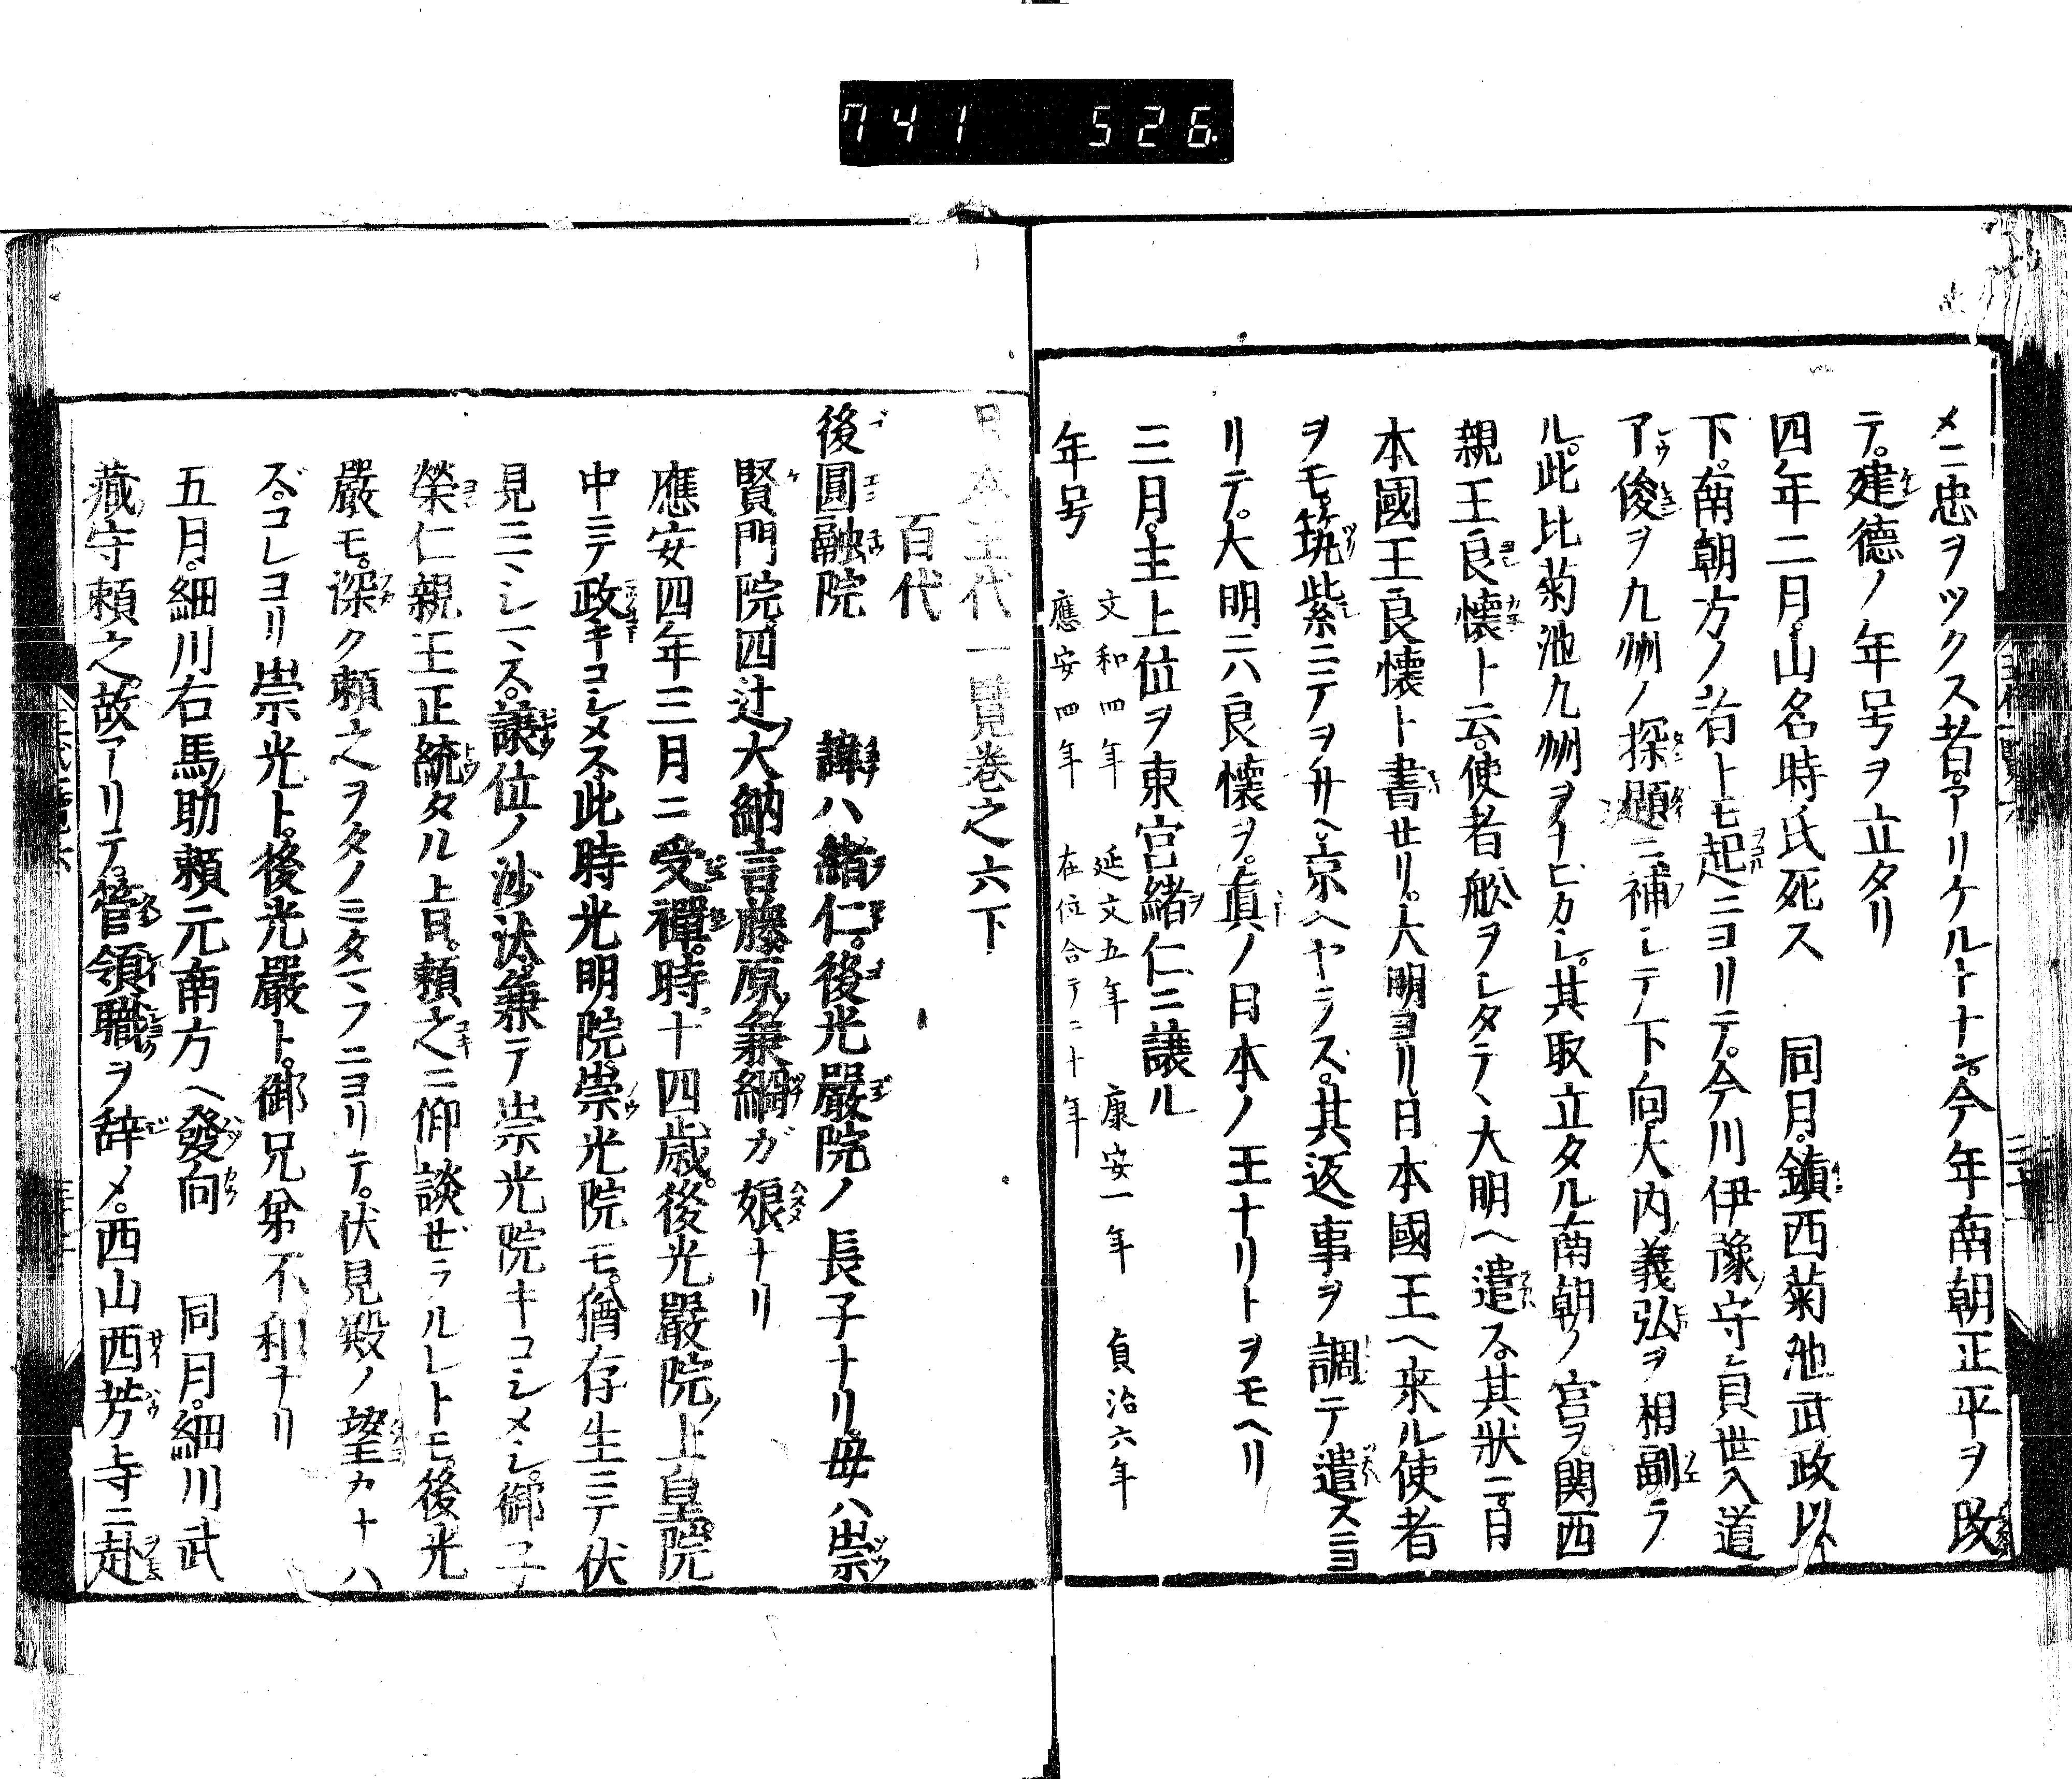 741 526
メニ忠ヲツクス者アリケルトナン今年南朝正平ヲ改
テ建德ノ年号ヲ立タリ
四年二月山名時氏死ス 同月鎮西菊池武政以
下南朝方ノ者トモ起ニヨリテ今川伊豫守貞世入道
了俊ヲ九州ノ探題ニ補シテ下向大内義弘ヲ相副ラ
ル此比菊池九州ヲナヒカシ其取立タル南朝ノ宮ヲ関西
親王良懷ト云使者舩ヲシタテヽ大明ヘ遣ス其狀ニ日
本國王良懷ト書せリ大明ヨリ日本國王ヘ来ル使者
ヲモ筑紫ニテヲサヘ京ヘヤラス其返事ヲ調テ遣スニヨ
リテ大明ニハ良懷ヲ眞ノ日本ノ王ナリトヲモヘリ
三月主上位ヲ東宮緒仁ニ譲ル
年号 文和四年 延文五年 康安一年 貞治六年
應安四年 在位合テ二十年
日本王代一覧巻之六下
百代
後圓融院 諱ハ緒仁後光嚴院ノ長子ナリ母ハ崇
賢門院四辻大納言藤原兼綱ガ娘ナリ
應安四年三月ニ受禪時十四歳後光嚴院上皇院
中ニテ政キコシメス此時光明院崇光院モ猶存生ニテ伏
見ニヽシマス譲位ノ沙汰兼テ崇光院キコシメシ御子
榮仁親王正統タル上旨頼之ニ仰談ぜラルレトモ後光
嚴モ深ク頼之ヲタノミタマフニヨリテ伏見殿ノ望カナハ
ズコレヨリ崇光ト後光嚴ト御兄弟不和ナリ
五月細川右馬助頼元南方ヘ發向 同月細川武
蔵守頼之故アリテ管領職ヲ辞メ西山西芳寺ニ赴